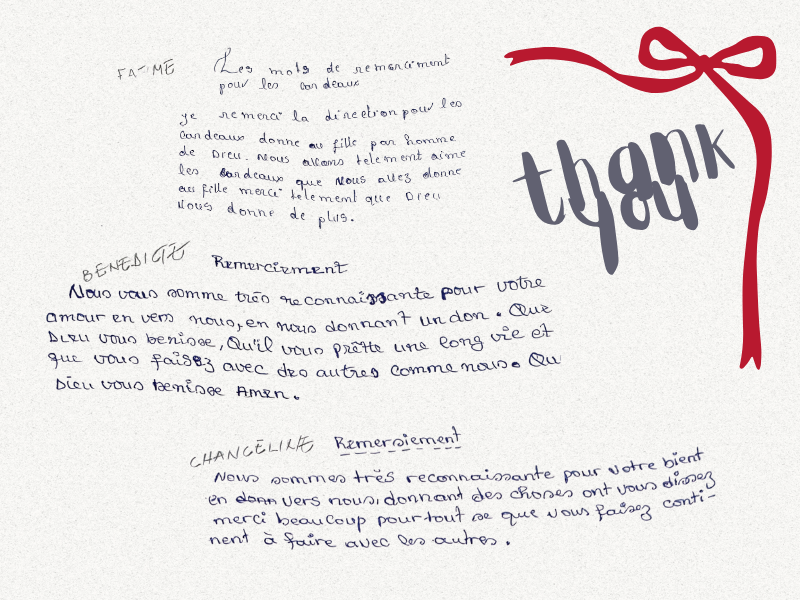 FATIME
Les mots de remerciment
pour les cardeaux
ye remerci la direction pour les
cardeaux donne au fille par homme
de Dieu. Nous allons telement aime
les cardeaux que Nous allez donne
au fille merci telement que Dieu
Nous donne de plus.
thank
you
BENEDICTE
Remerciement
Nous vous somme très reconnaissante pour votre
amour en vers nous, en nous donnant un don. Que
Dieu vous benisse, Qu'il vous prêtte une long vie et
que vous faisez avec des autres comme nous. Qu
Dieu vous benisse Amen.
CHANCELINE
Remersiement
Nous sommes très reconnaissante pour votre bient
en donn vers nous, donnant des choses ont vous dissez
merci beaucoup pour tout se que vous faisez conti-
nent à faire avec les autres.